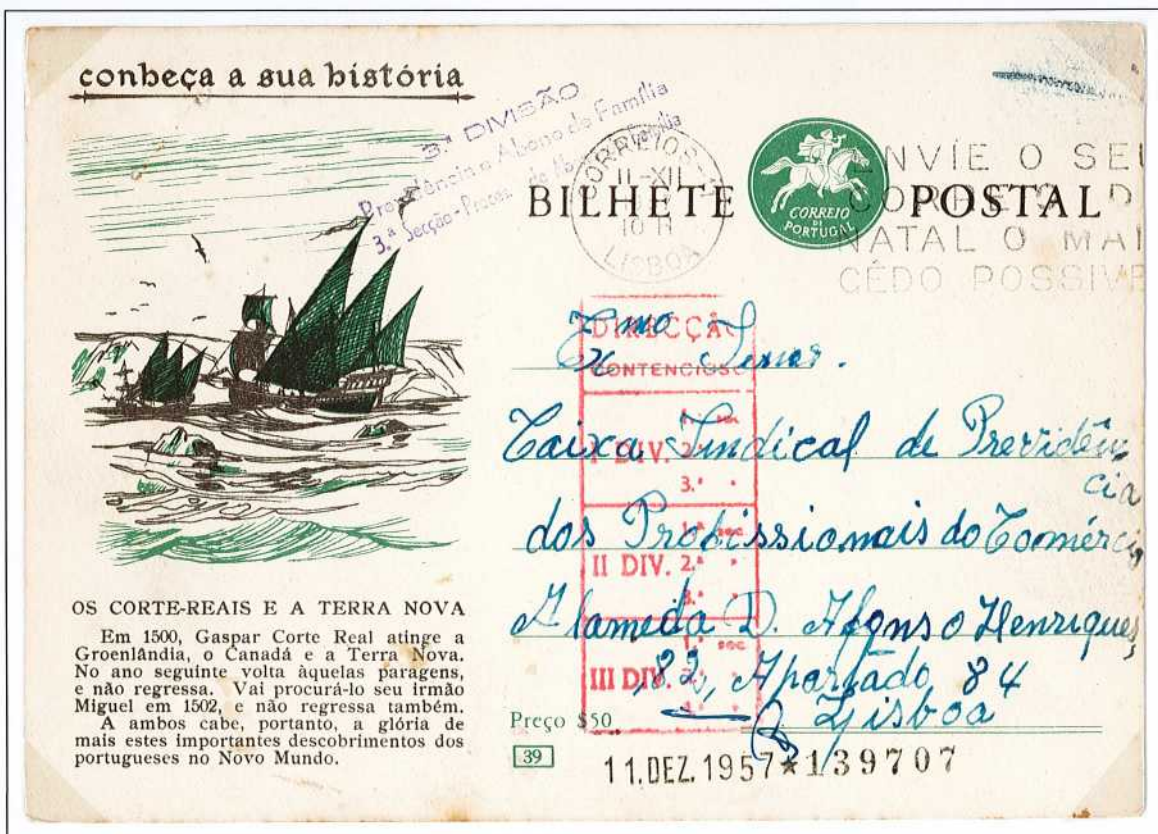 conheça a sua história
3.ª DIVISÃO
Previdência e Abono de Família
3.ª Secção-Proces. de
CORREIOS
11-XII
10 H
LISBOA
BILHETE POSTAL
CORREIO
DE
PORTUGAL
ENVIE O SEU
NATAL O MAI
CÊDO POSSIVE
DIRECÇÃO
CONTENCIOSO
I DIV. 2.ª
3.ª
1.ª SEC
II DIV. 2.ª
3.ª
1.ª SEC
III DIV.
Exmo Senor.
Caixa Sindical de Previdência
dos Profissionais do Comércio
Alameda D. Afonso Henriques,
82, Apartado 84
Lisboa
OS CORTE-REAIS E A TERRA NOVA
Em 1500, Gaspar Corte Real atinge a
Groenlândia, o Canadá e a Terra Nova.
No ano seguinte volta àquelas paragens,
e não regressa. Vai procurá-lo seu irmão
Miguel em 1502, e não regressa também.
A ambos cabe, portanto, a glória de
mais estes importantes descobrimentos dos
portugueses no Novo Mundo.
Preço $50
39
11.DEZ.1957*139707